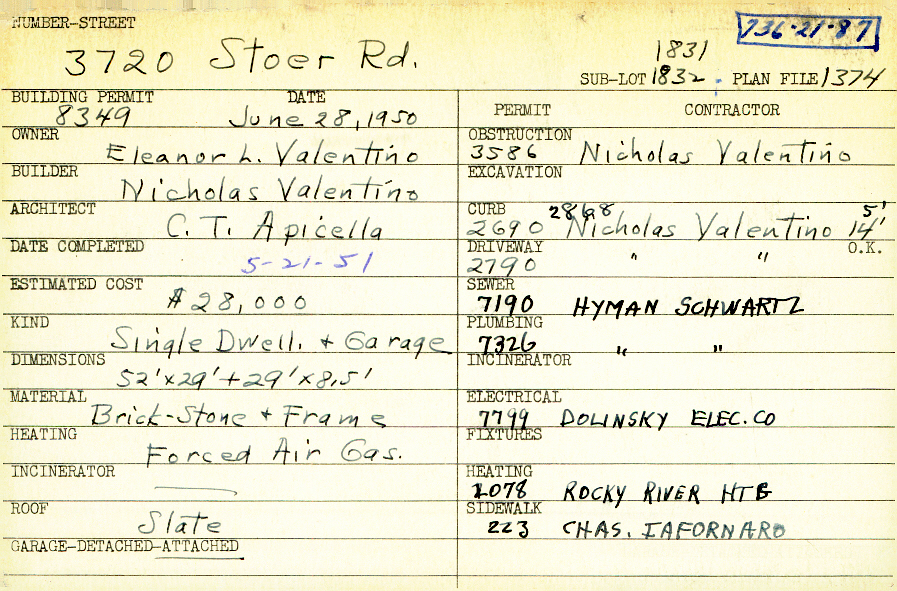 NUMBER-STREET
736-21-87
3720 Stoer Rd.
1831
SUB-LOT 1832 - PLAN FILE 1374
BUILDING PERMIT DATE
8349 June 28, 1950
OWNER
Eleanor L. Valentino
BUILDER
Nicholas Valentino
ARCHITECT
C. T. Apicella
DATE COMPLETED
5-21-51
ESTIMATED COST
$28,000
KIND
Single Dwell. + Garage
DIMENSIONS
52'x29'+29'x8.5'
MATERIAL
Brick-Stone + Frame
HEATING
Forced Air Gas.
INCINERATOR
ROOF
Slate
GARAGE-DETACHED-ATTACHED
PERMIT CONTRACTOR
OBSTRUCTION
3586 Nicholas Valentino
EXCAVATION
CURB 2868 5'
2690 Nicholas Valentino 14'
DRIVEWAY O.K.
2790 " "
SEWER
7190 HYMAN SCHWARTZ
PLUMBING
7326 " "
INCINERATOR
ELECTRICAL
7799 DOLINSKY ELEC. CO
FIXTURES
HEATING
1078 ROCKY RIVER HTG
SIDEWALK
223 CHAS. IAFORNARO